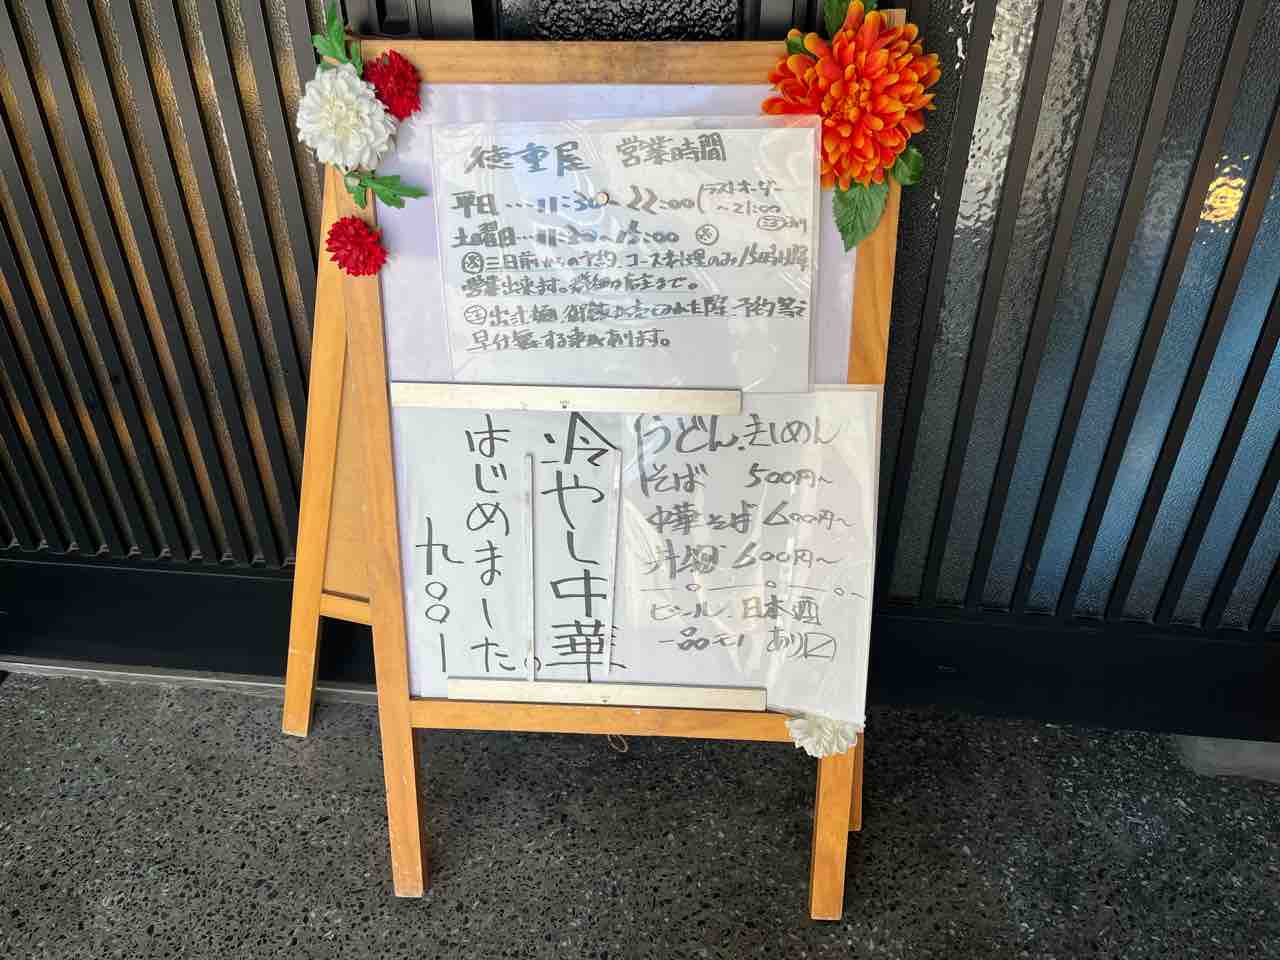 徳重屋 営業時間
平日…11:30~22:00(ラストオーダー
~21:00
土曜日…11:30~15:00 ※
※三日前からの予約、コース料理のみ15時以降
営業出来ます。詳細は店主まで。
早仕舞する事があります。
うどん、きしめん
そば 500円~
中華そば 600円~
丼物 600円~
ビール、日本酒
一品モノ あり〼
冷やし中華
はじめました。
九〇〇ー